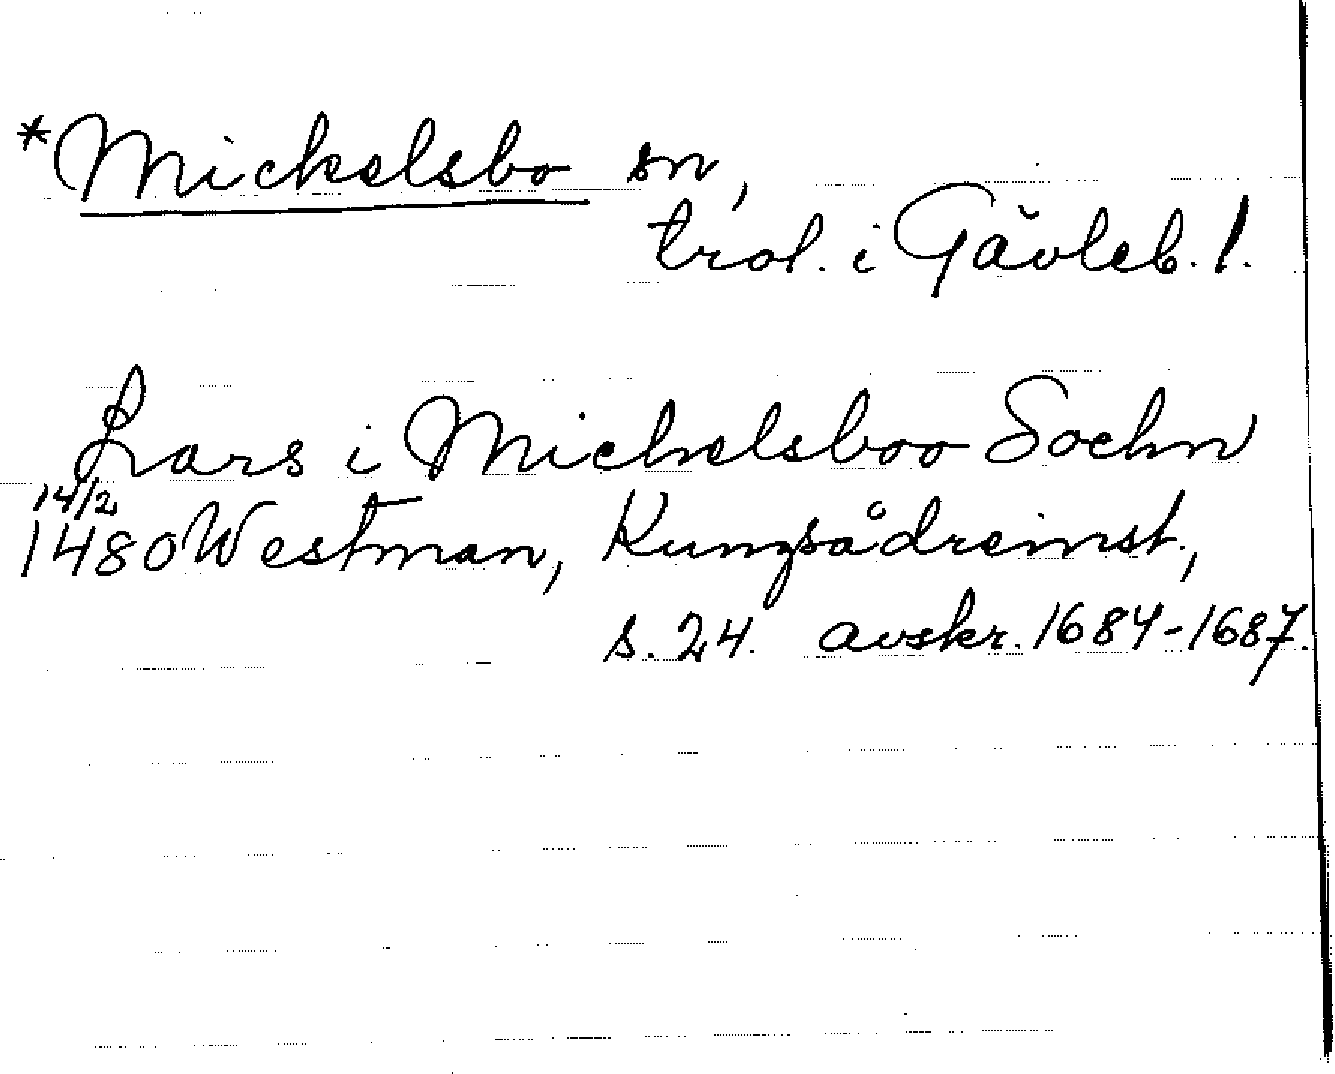 *Mickelsbo sn,
trol. i Gävleb. l.
Lars i Michelsboo Sochn
14/2
1480 Westman, Kungsådreinst.,
s. 24. avskr. 1684-1687.